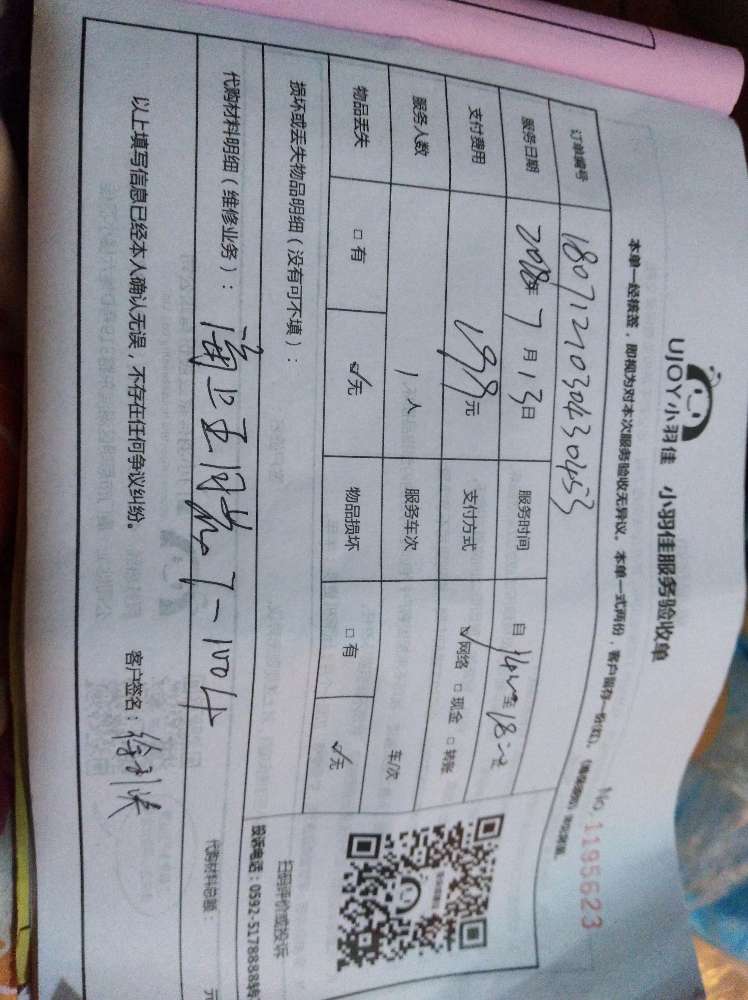 UJOY小羽佳 小羽佳服务验收单
No 1195623
本单一经核签，即视为对本次服务验收无异议。本单一式两份，客户留存一份(红)，
订单编号 1807121030430453
服务日期 2018年 7 月 13 日 服务时间 自 至
支付费用 199 元 支付方式 ☑网络 □现金 □转账
服务人数 1 人 服务车次 车/次
物品丢失 □有 ☑无 物品损坏 □有 ☑无
损坏或丢失物品明细（没有可不填）：
扫码评价或投诉
投诉电话：0592-5178888转
代购材料明细（维修业务）：
代购材料总额： 元
以上填写信息已经本人确认无误，不存在任何争议纠纷。 客户签名：